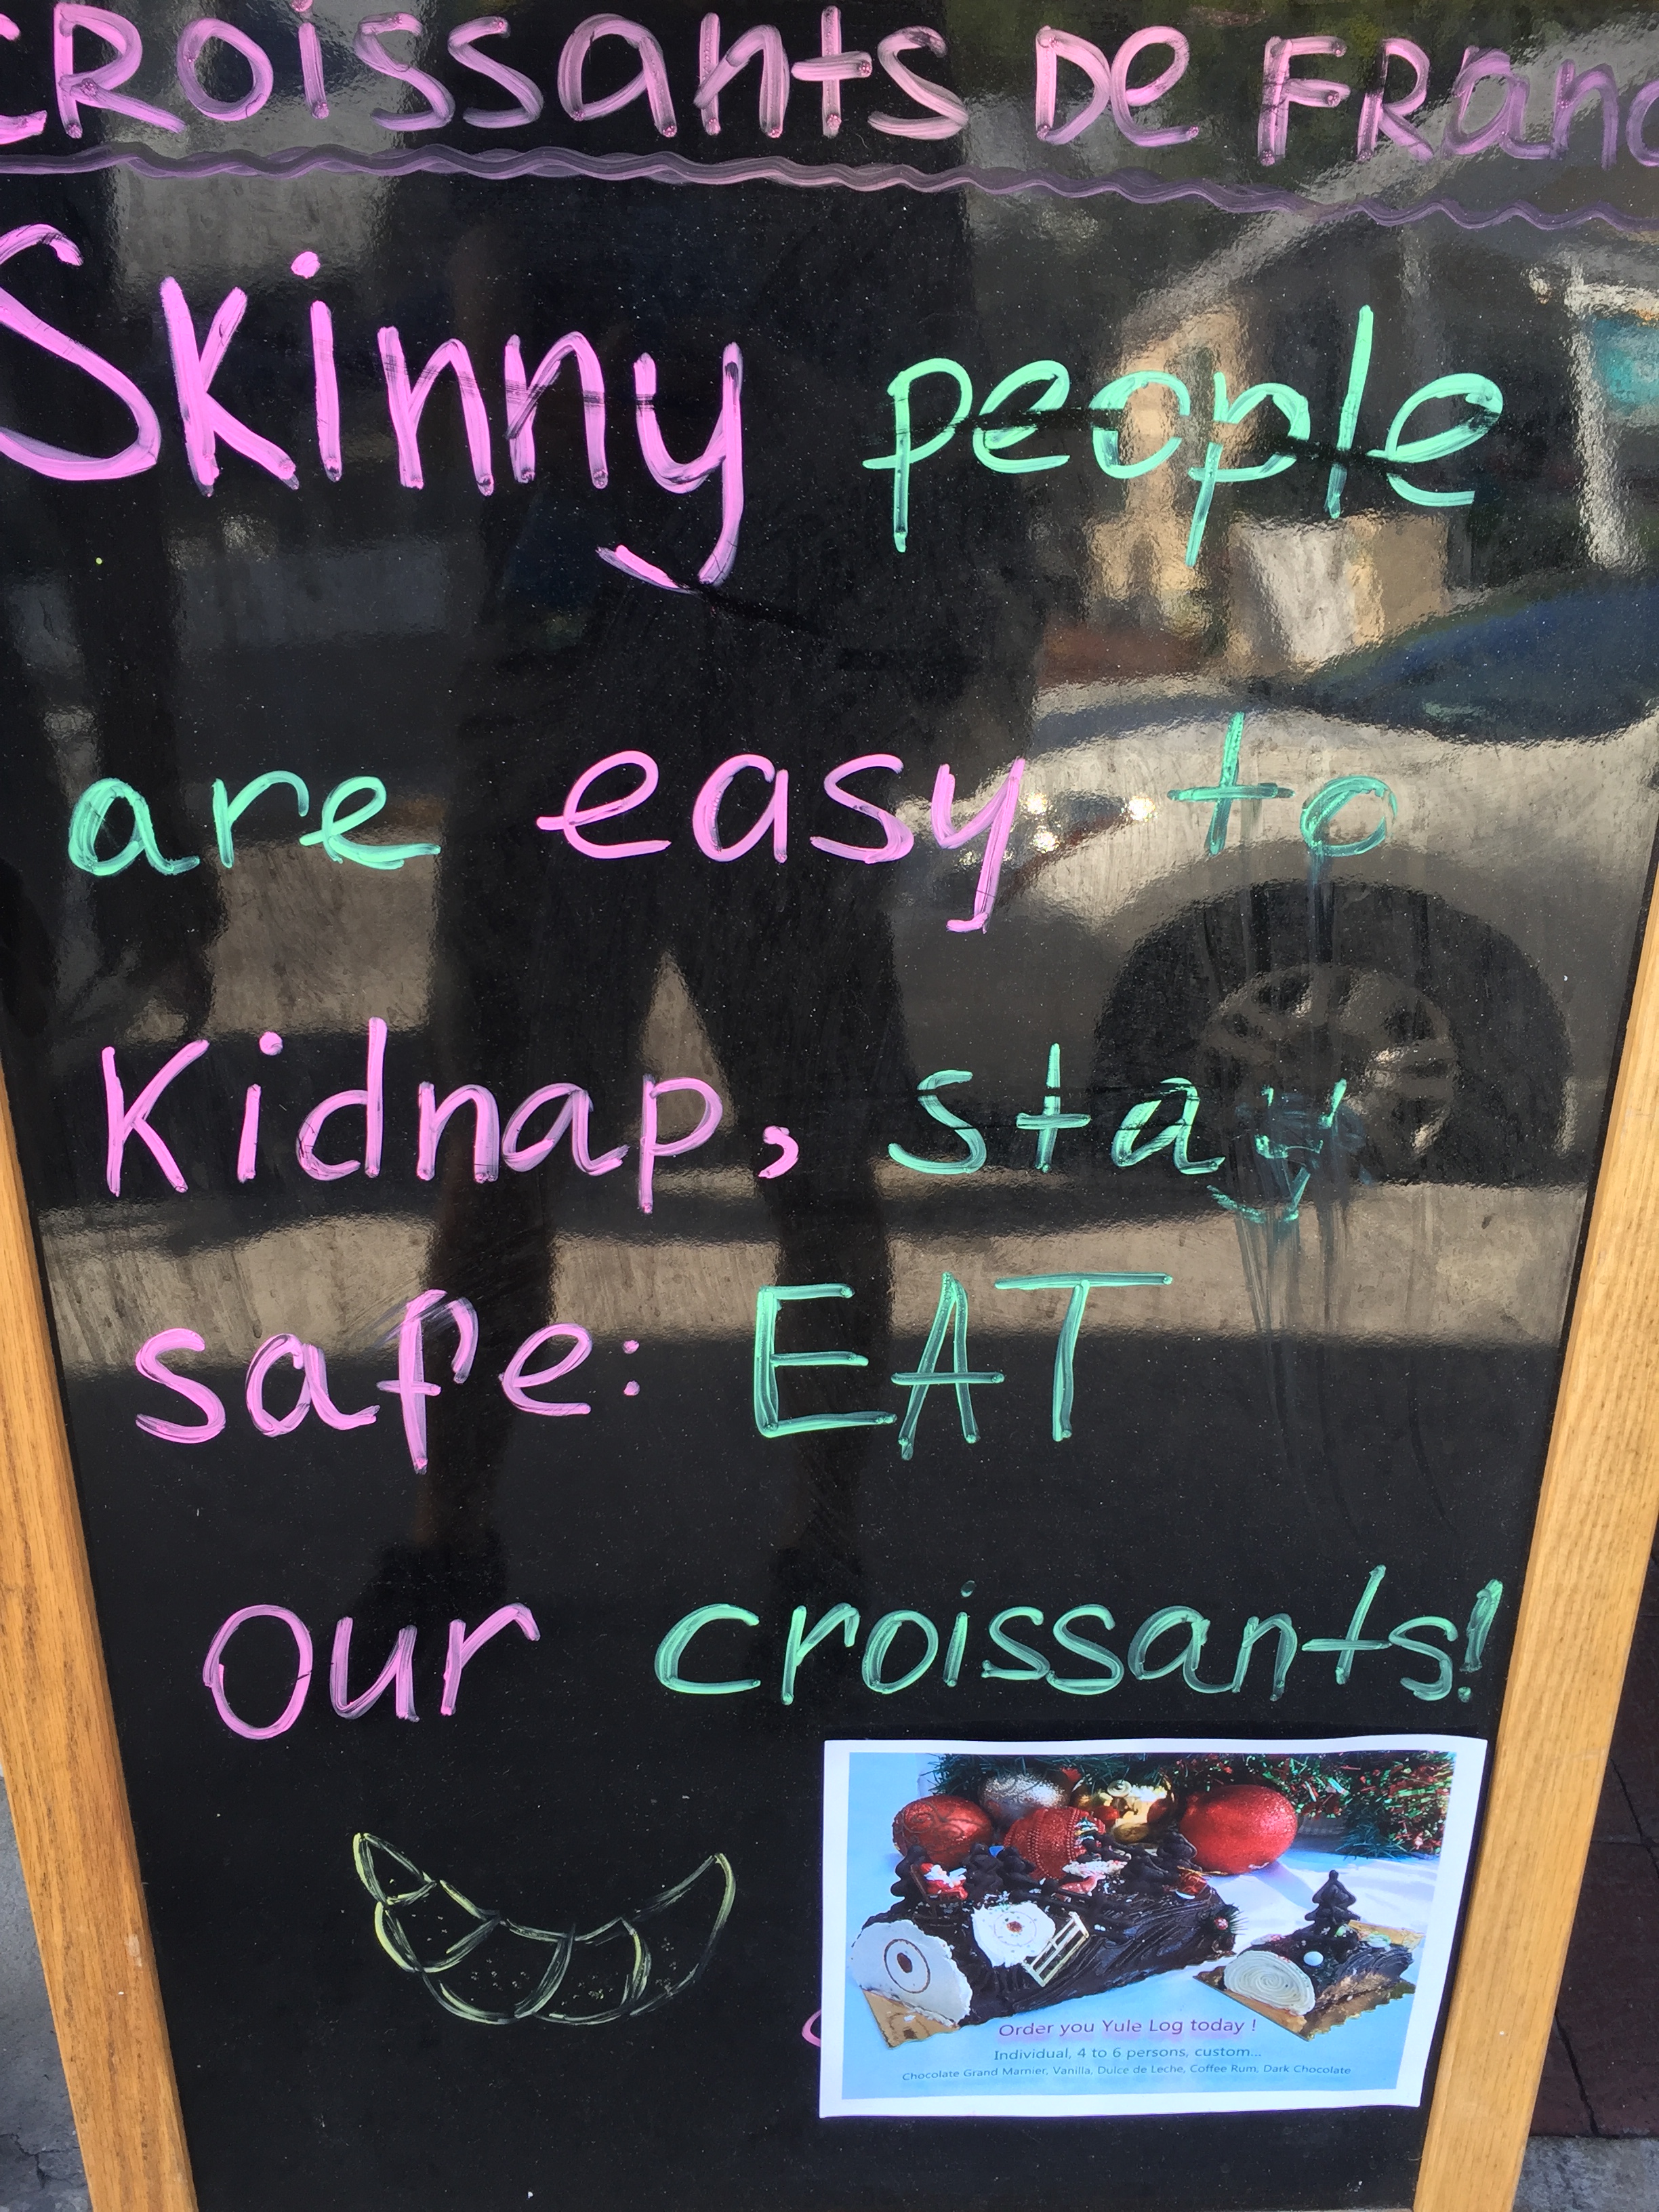 CROissants De FRanc
Skinny people
are easy to
Kidnap, stay
safe: EAT
Our croissants!
Order you Yule Log today !
Individual, 4 to 6 persons, custom...
Chocolate Grand Marnier, Vanilla, Dulce de Leche, Coffee Rum, Dark Chocolate